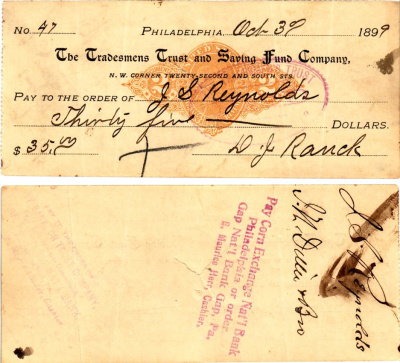 No. 47 PHILADELPHIA, Oct 30 1899
The Tradesmens Trust and Saving Fund Company,
N. W. CORNER TWENTY-SECOND AND SOUTH STS.
PAY TO THE ORDER OF J. S. Reynolds
Thirty five DOLLARS.
$ 35.00 D. J. Ranck
Pay Corn Exchange Nat'l Bank
Philadelphia or order
Gap Nat'l Bank Gap, Pa.
Cashier.
J S Reynolds
& Bro